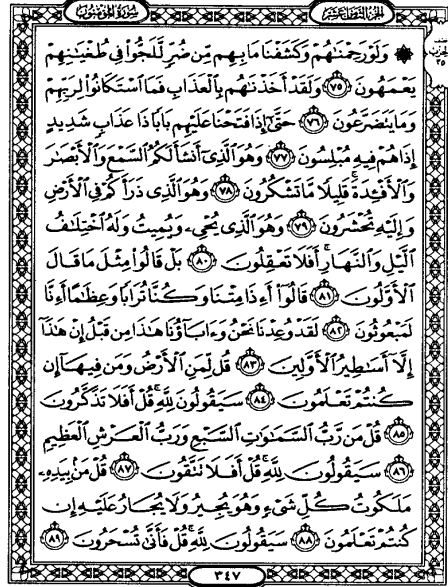 سُورَةُ المُؤْمِنُونَ الجُزْءُ الثَّامِنَ عَشَرَ
۞ وَلَوْ رَحِمْنَٰهُمْ وَكَشَفْنَا مَا بِهِم مِّن ضُرٍّ لَّلَجُّوا۟ فِى طُغْيَٰنِهِمْ
يَعْمَهُونَ ٧٥ وَلَقَدْ أَخَذْنَٰهُم بِٱلْعَذَابِ فَمَا ٱسْتَكَانُوا۟ لِرَبِّهِمْ
وَمَا يَتَضَرَّعُونَ ٧٦ حَتَّىٰٓ إِذَا فَتَحْنَا عَلَيْهِم بَابًا ذَا عَذَابٍ شَدِيدٍ
إِذَا هُمْ فِيهِ مُبْلِسُونَ ٧٧ وَهُوَ ٱلَّذِىٓ أَنشَأَ لَكُمُ ٱلسَّمْعَ وَٱلْأَبْصَٰرَ
وَٱلْأَفْـِٔدَةَ ۚ قَلِيلًا مَّا تَشْكُرُونَ ٧٨ وَهُوَ ٱلَّذِى ذَرَأَكُمْ فِى ٱلْأَرْضِ
وَإِلَيْهِ تُحْشَرُونَ ٧٩ وَهُوَ ٱلَّذِى يُحْىِۦ وَيُمِيتُ وَلَهُ ٱخْتِلَٰفُ
ٱلَّيْلِ وَٱلنَّهَارِ ۚ أَفَلَا تَعْقِلُونَ ٨٠ بَلْ قَالُوا۟ مِثْلَ مَا قَالَ
ٱلْأَوَّلُونَ ٨١ قَالُوٓا۟ أَءِذَا مِتْنَا وَكُنَّا تُرَابًا وَعِظَٰمًا أَءِنَّا
لَمَبْعُوثُونَ ٨٢ لَقَدْ وُعِدْنَا نَحْنُ وَءَابَآؤُنَا هَٰذَا مِن قَبْلُ إِنْ هَٰذَآ
إِلَّآ أَسَٰطِيرُ ٱلْأَوَّلِينَ ٨٣ قُل لِّمَنِ ٱلْأَرْضُ وَمَن فِيهَآ إِن
كُنتُمْ تَعْلَمُونَ ٨٤ سَيَقُولُونَ لِلَّهِ ۚ قُلْ أَفَلَا تَذَكَّرُونَ
٨٥ قُلْ مَن رَّبُّ ٱلسَّمَٰوَٰتِ ٱلسَّبْعِ وَرَبُّ ٱلْعَرْشِ ٱلْعَظِيمِ
٨٦ سَيَقُولُونَ لِلَّهِ ۚ قُلْ أَفَلَا تَتَّقُونَ ٨٧ قُلْ مَنۢ بِيَدِهِۦ
مَلَكُوتُ كُلِّ شَىْءٍ وَهُوَ يُجِيرُ وَلَا يُجَارُ عَلَيْهِ إِن
كُنتُمْ تَعْلَمُونَ ٨٨ سَيَقُولُونَ لِلَّهِ ۚ قُلْ فَأَنَّىٰ تُسْحَرُونَ ٨٩
٣٤٧